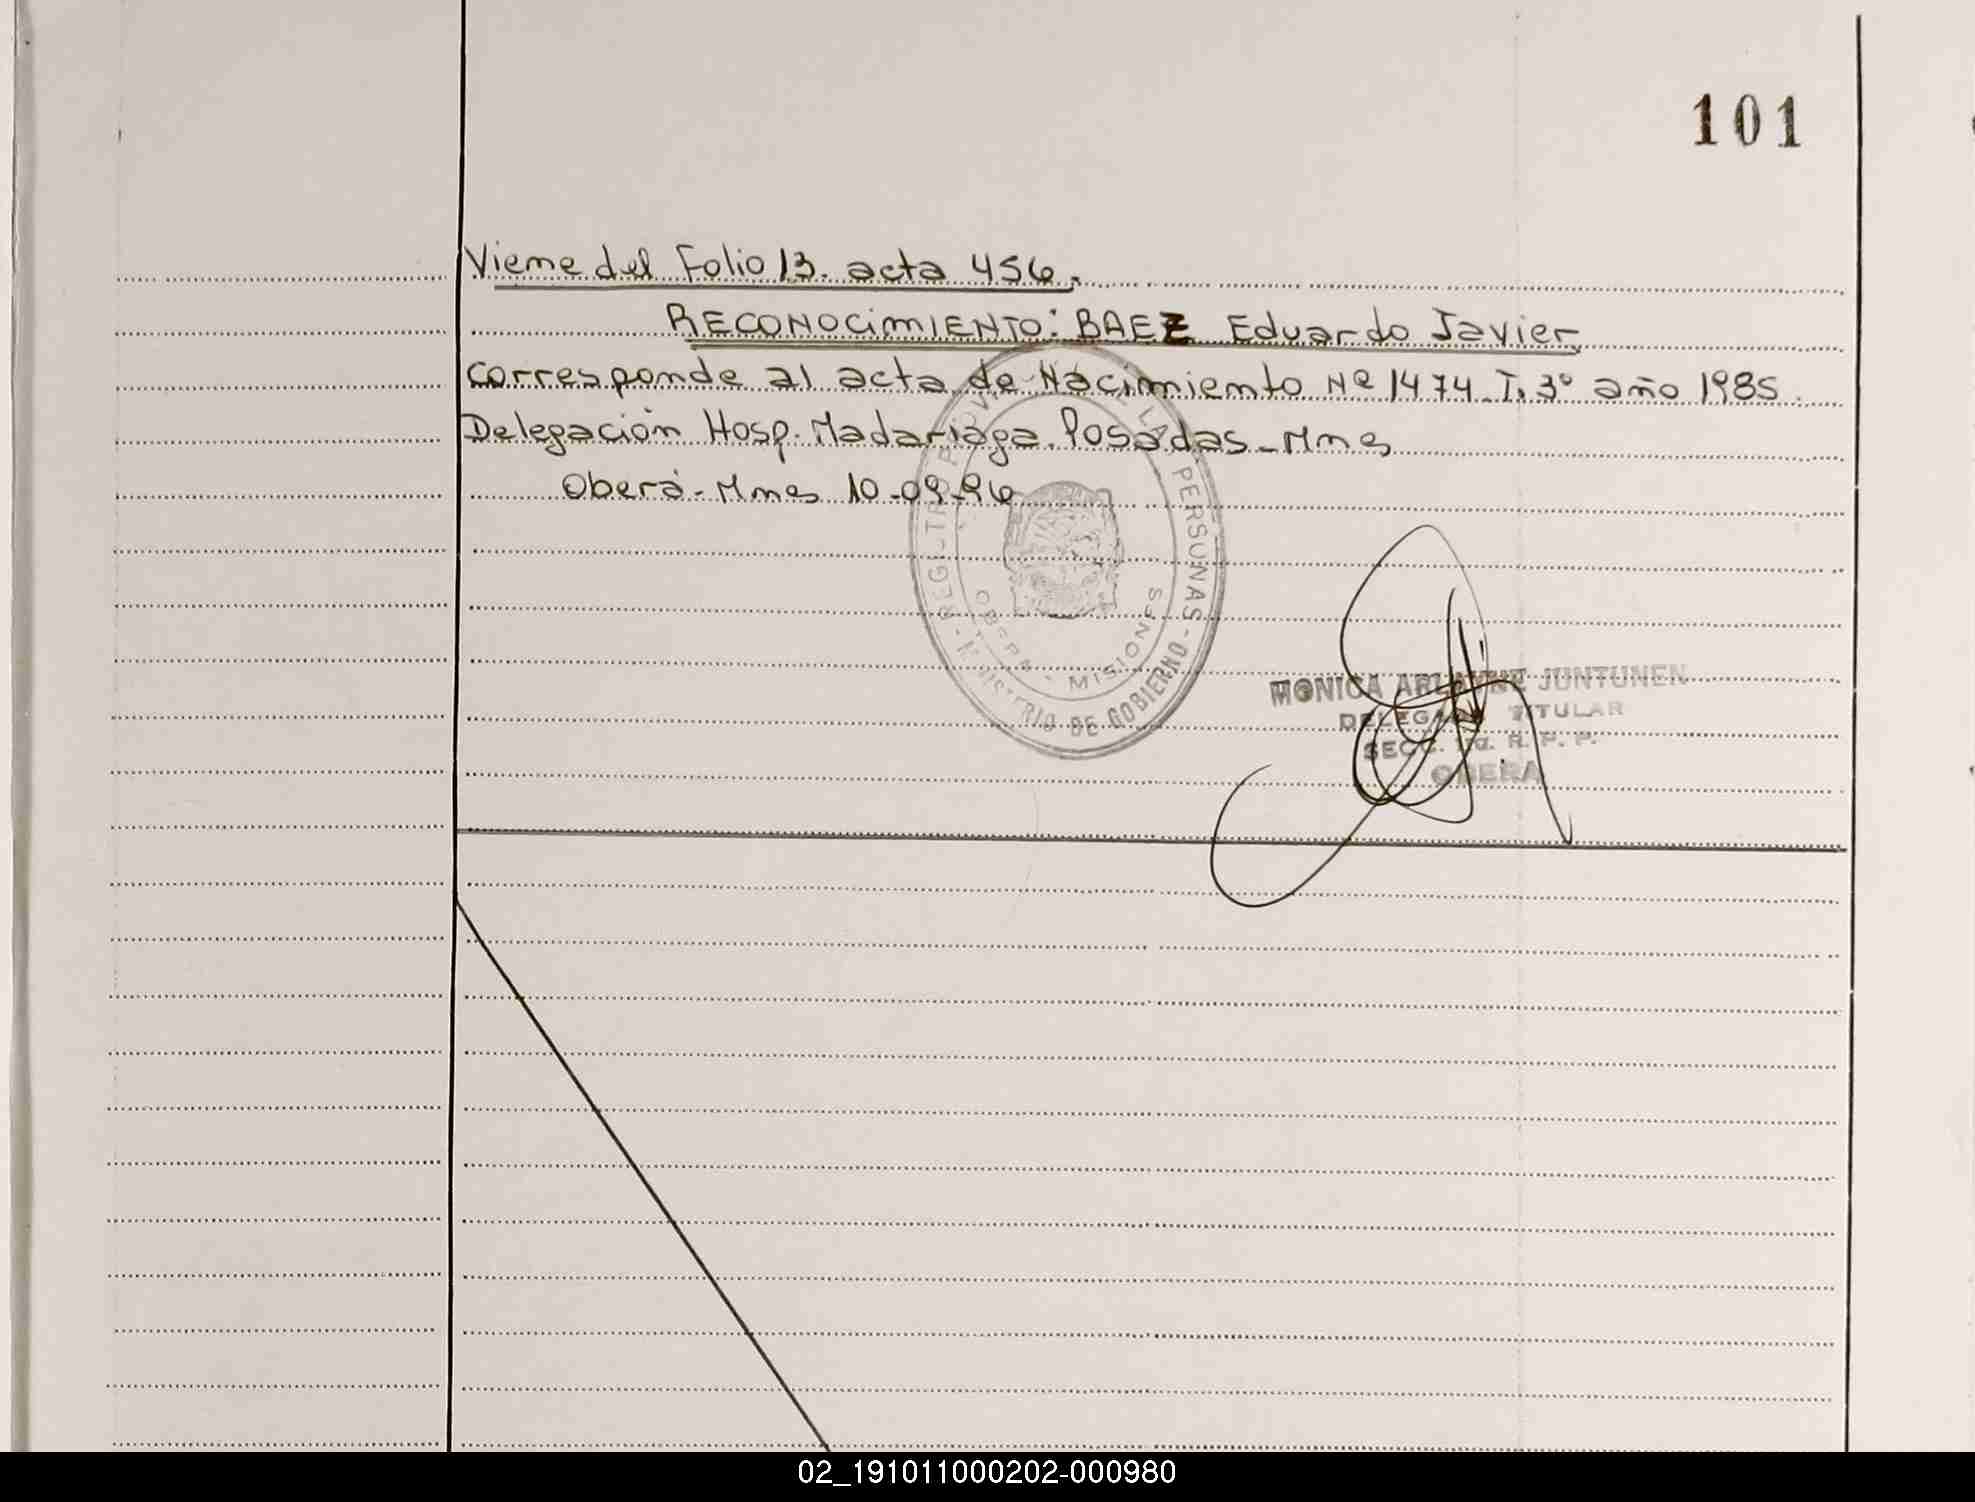 101
Viene del Folio 13. acta 456.
RECONOCIMIENTO: BAEZ Eduardo Javier
Corresponde al acta de Nacimiento Nº 1474 T. 3º año 1985.
Delegación Hosp. Madariaga. Posadas - Mnes
Oberá - Mnes 10-09-96
LA PERSONAS - MINISTERIO DE GOBIERNO -
OBERA - MISIONES
MONICA ARLAYNE JUNTUNEN
DELEGADA TITULAR
SECC. R. P. P.
OBERA
02_191011000202-000980